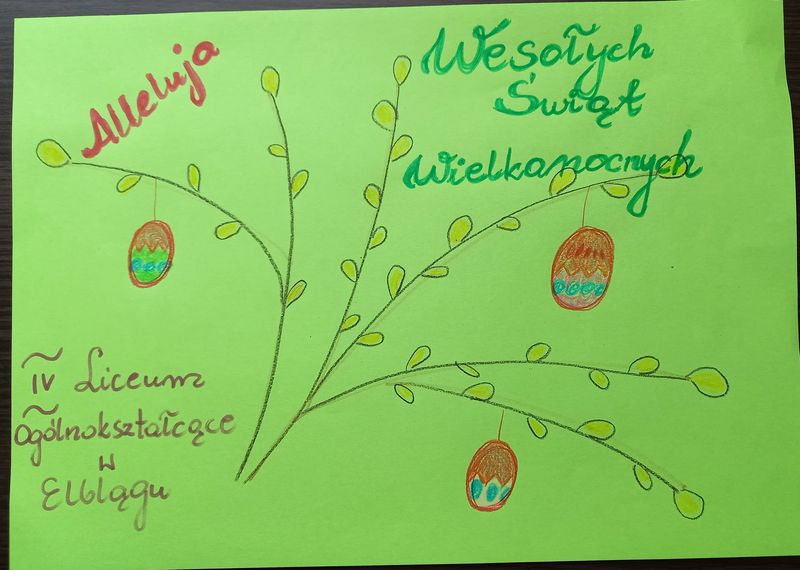 Alleluja
Wesołych
Świąt
Wielkanocnych
IV Liceum
Ogólnokształcące
w
Elblągu